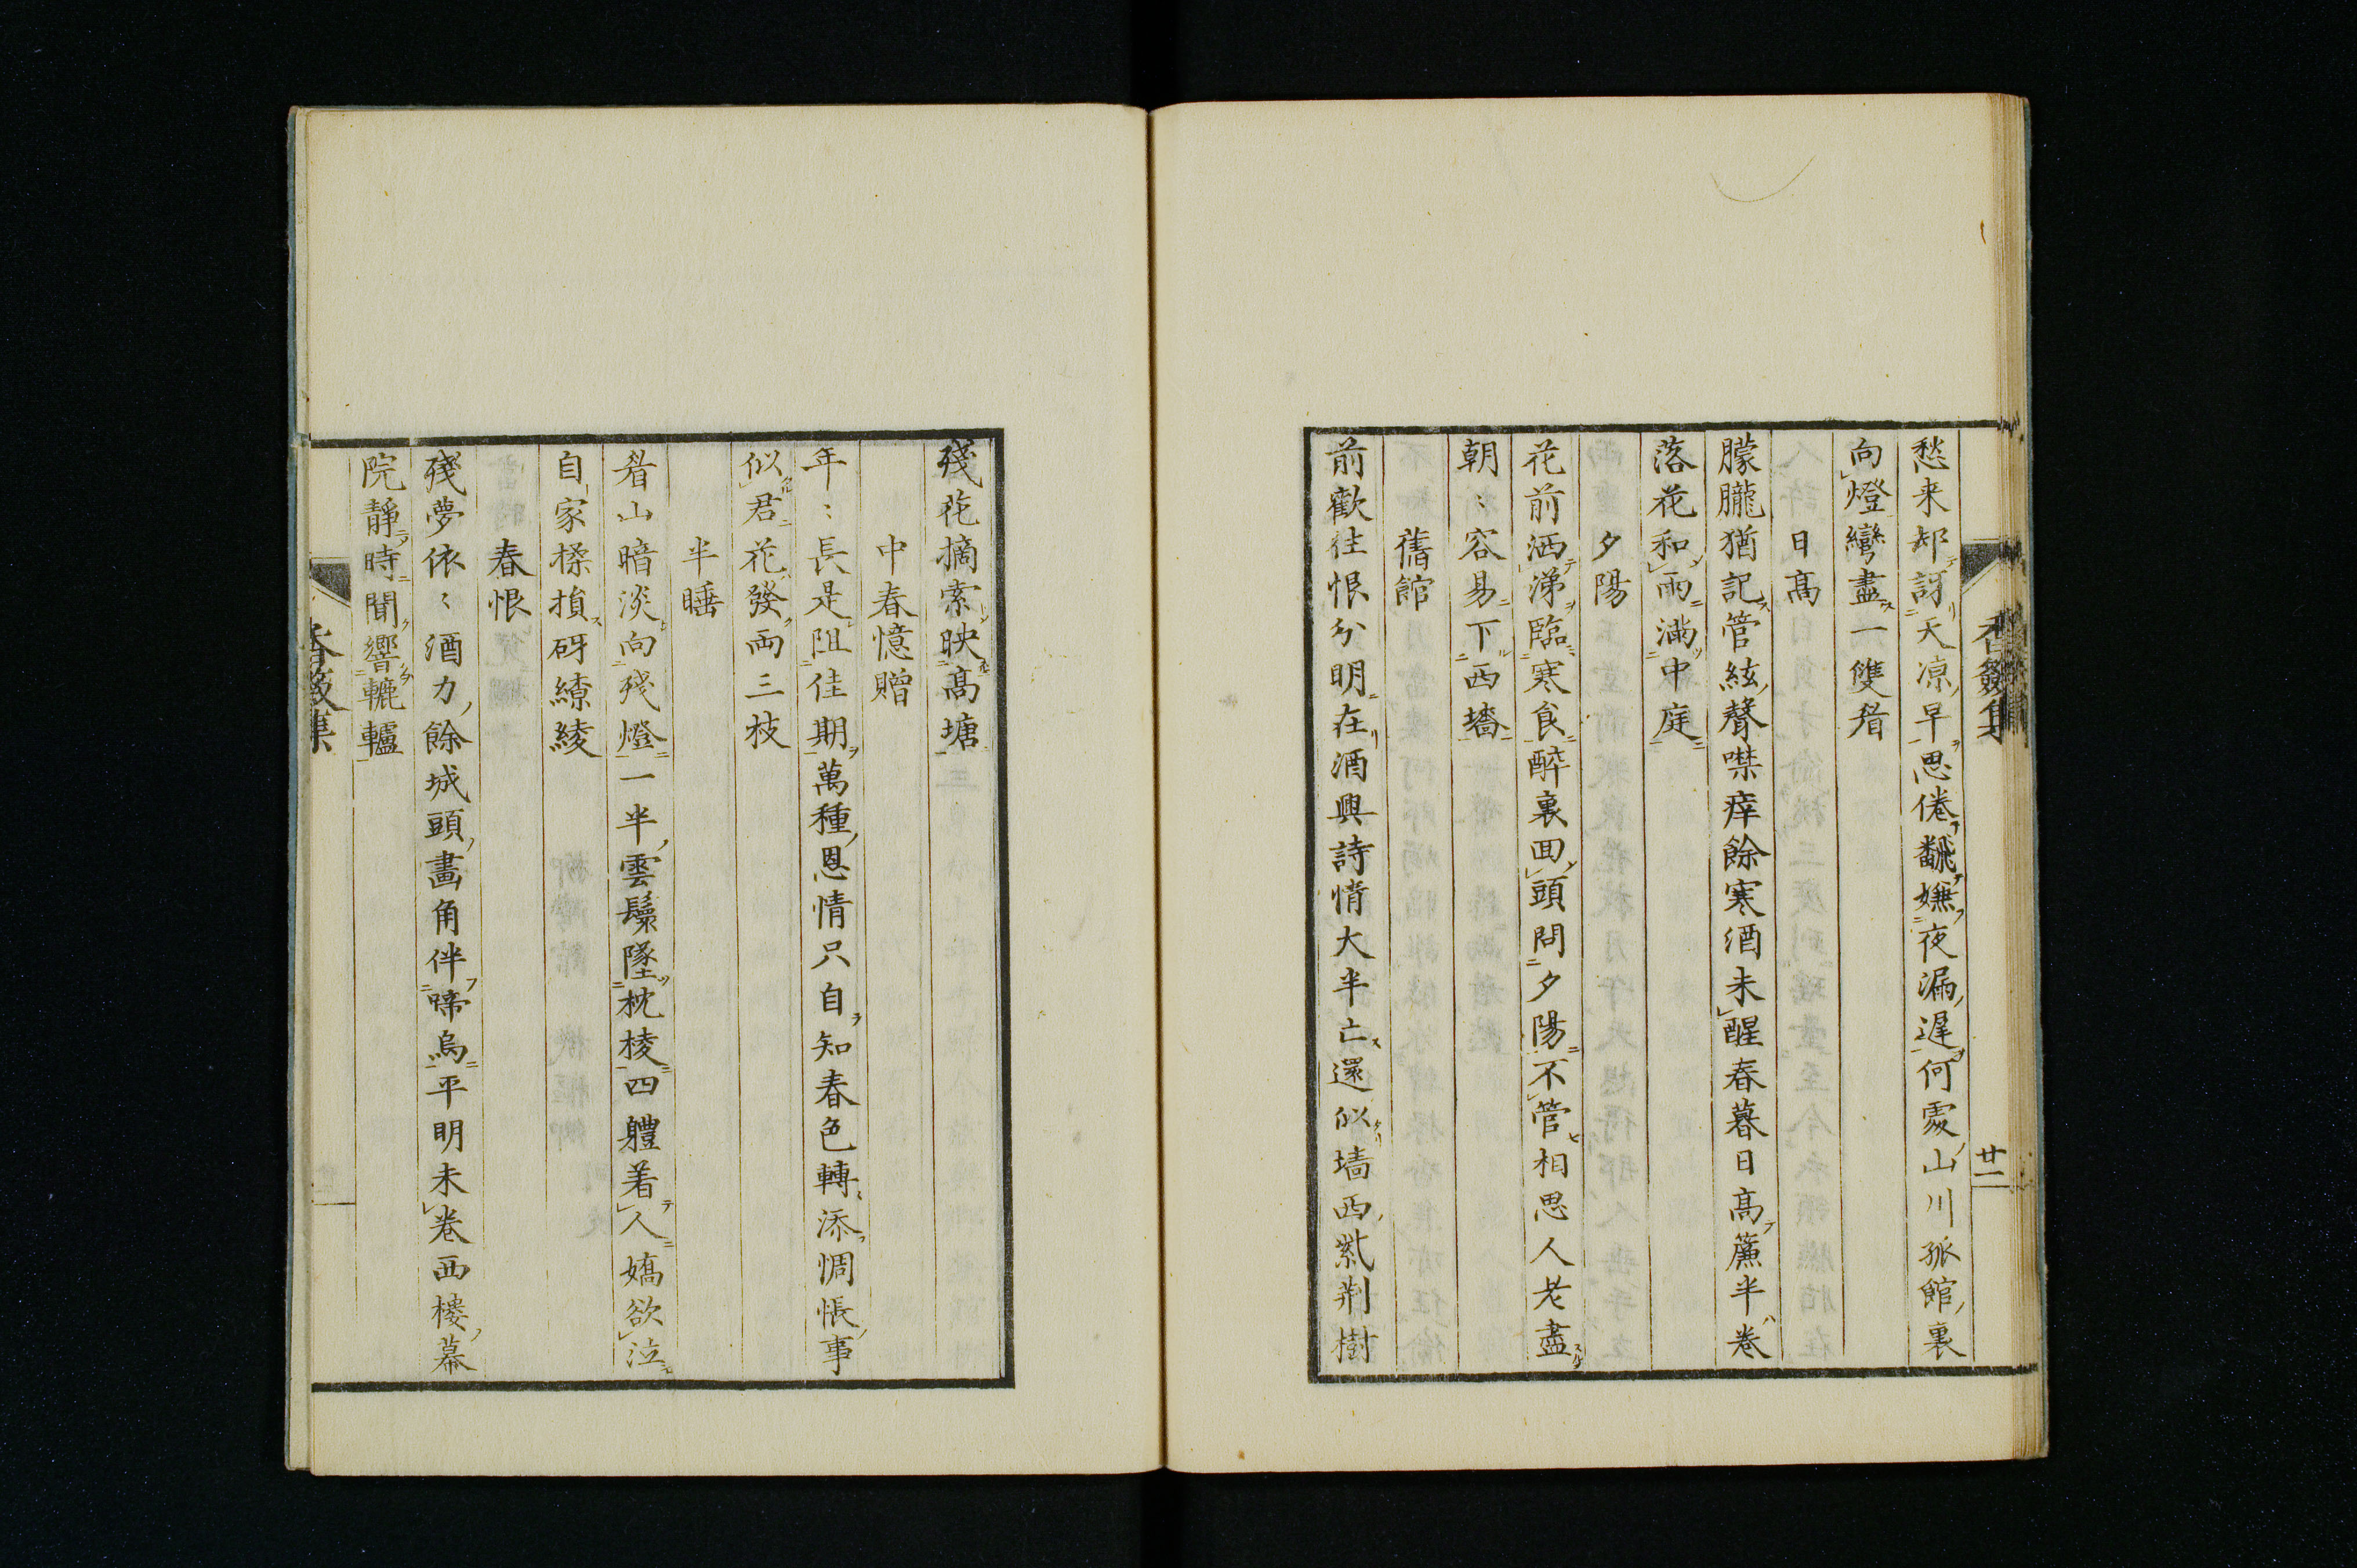 香奩集 廿一
愁来却訝天凉早思倦翻嫌夜漏遅何處山川孤館裏
向燈彎盡一雙眉
日髙
朦朧猶記管絃聲噤痒餘寒酒未醒春暮日髙簾半卷
落花和雨滿中庭
夕陽
花前洒涕臨寒食醉裏回頭問夕陽不管相思人老盡
朝〻容易下西墻
舊館
前歡往恨分明在酒興詩情大半亡還似墙西紫荆樹
殘花摘索映髙塘
中春憶贈
年〻長是阻佳期萬種恩情只自知春色轉添惆悵事
似君花發兩三枝
半睡
眉山暗淡向殘燈一半雲鬟墜枕棱四軆着人嬌欲泣
自家揉損砑繚綾
春恨
殘夢依〻酒力餘城頭畫角伴啼烏平明未卷西樓幕
院靜時聞響轆轤
香奩集